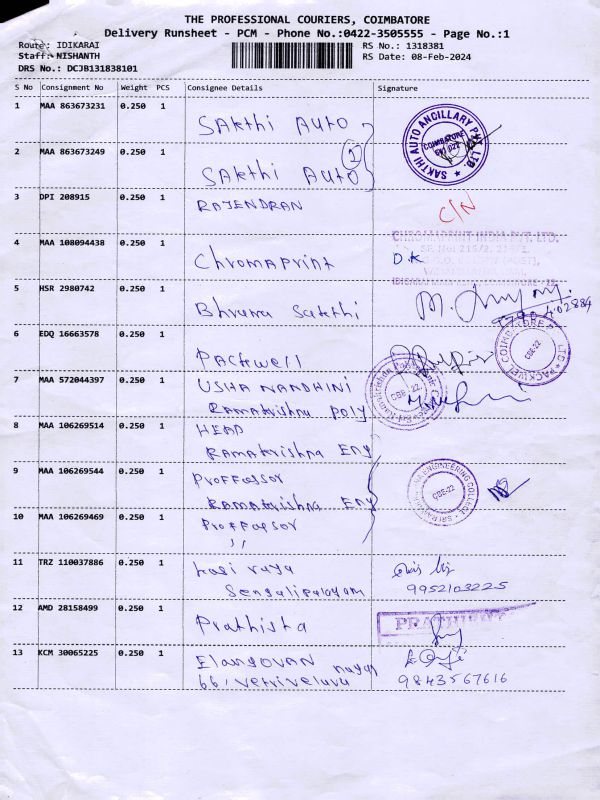 THE PROFESSIONAL COURIERS, COIMBATORE
Delivery Runsheet - PCM - Phone No.:0422-3505555 - Page No.:1
Route: IDIKARAI
RS No.: 1318381
Staff: NISHANTH
RS Date: 08-Feb-2024
DRS No.: DCJB131838101
S No Consignment No Weight PCS Consignee Details Signature
1 MAA 863673231 0.250 1 Sakthi Auto
SAKTHI AUTO ANCILLARY PVT. LTD.
COIMBATORE
641 022
2 MAA 863673249 0.250 1 Sakthi Auto
2
3 DPI 208915 0.250 1 RAJENDRAN C/N
4 MAA 108094438 0.250 1 Chromaprint D.K
CHROMAPRINT INDIA PVT. LTD.
5 HSR 2980742 0.250 1 Bhuvana Sakthi
6 EDQ 16663578 0.250 1 Packwell
CBE-22
7 MAA 572044397 0.250 1 USHA NANDHINI
Ramakrishna poly
CBE-22
8 MAA 106269514 0.250 1 HEAD
Ramakrishna Eng
9 MAA 106269544 0.250 1 Proffessor
Ramakrishna Eng
ENGINEERING COLLEGE
CBE-22
10 MAA 106269469 0.250 1 Proffessor
,,
11 TRZ 110037886 0.250 1
Sengalipalayam 9952103225
12 AMD 28158499 0.250 1 Prathista
13 KCM 30065225 0.250 1 Elangovan nagar
66, vetriveluvu 9843567616